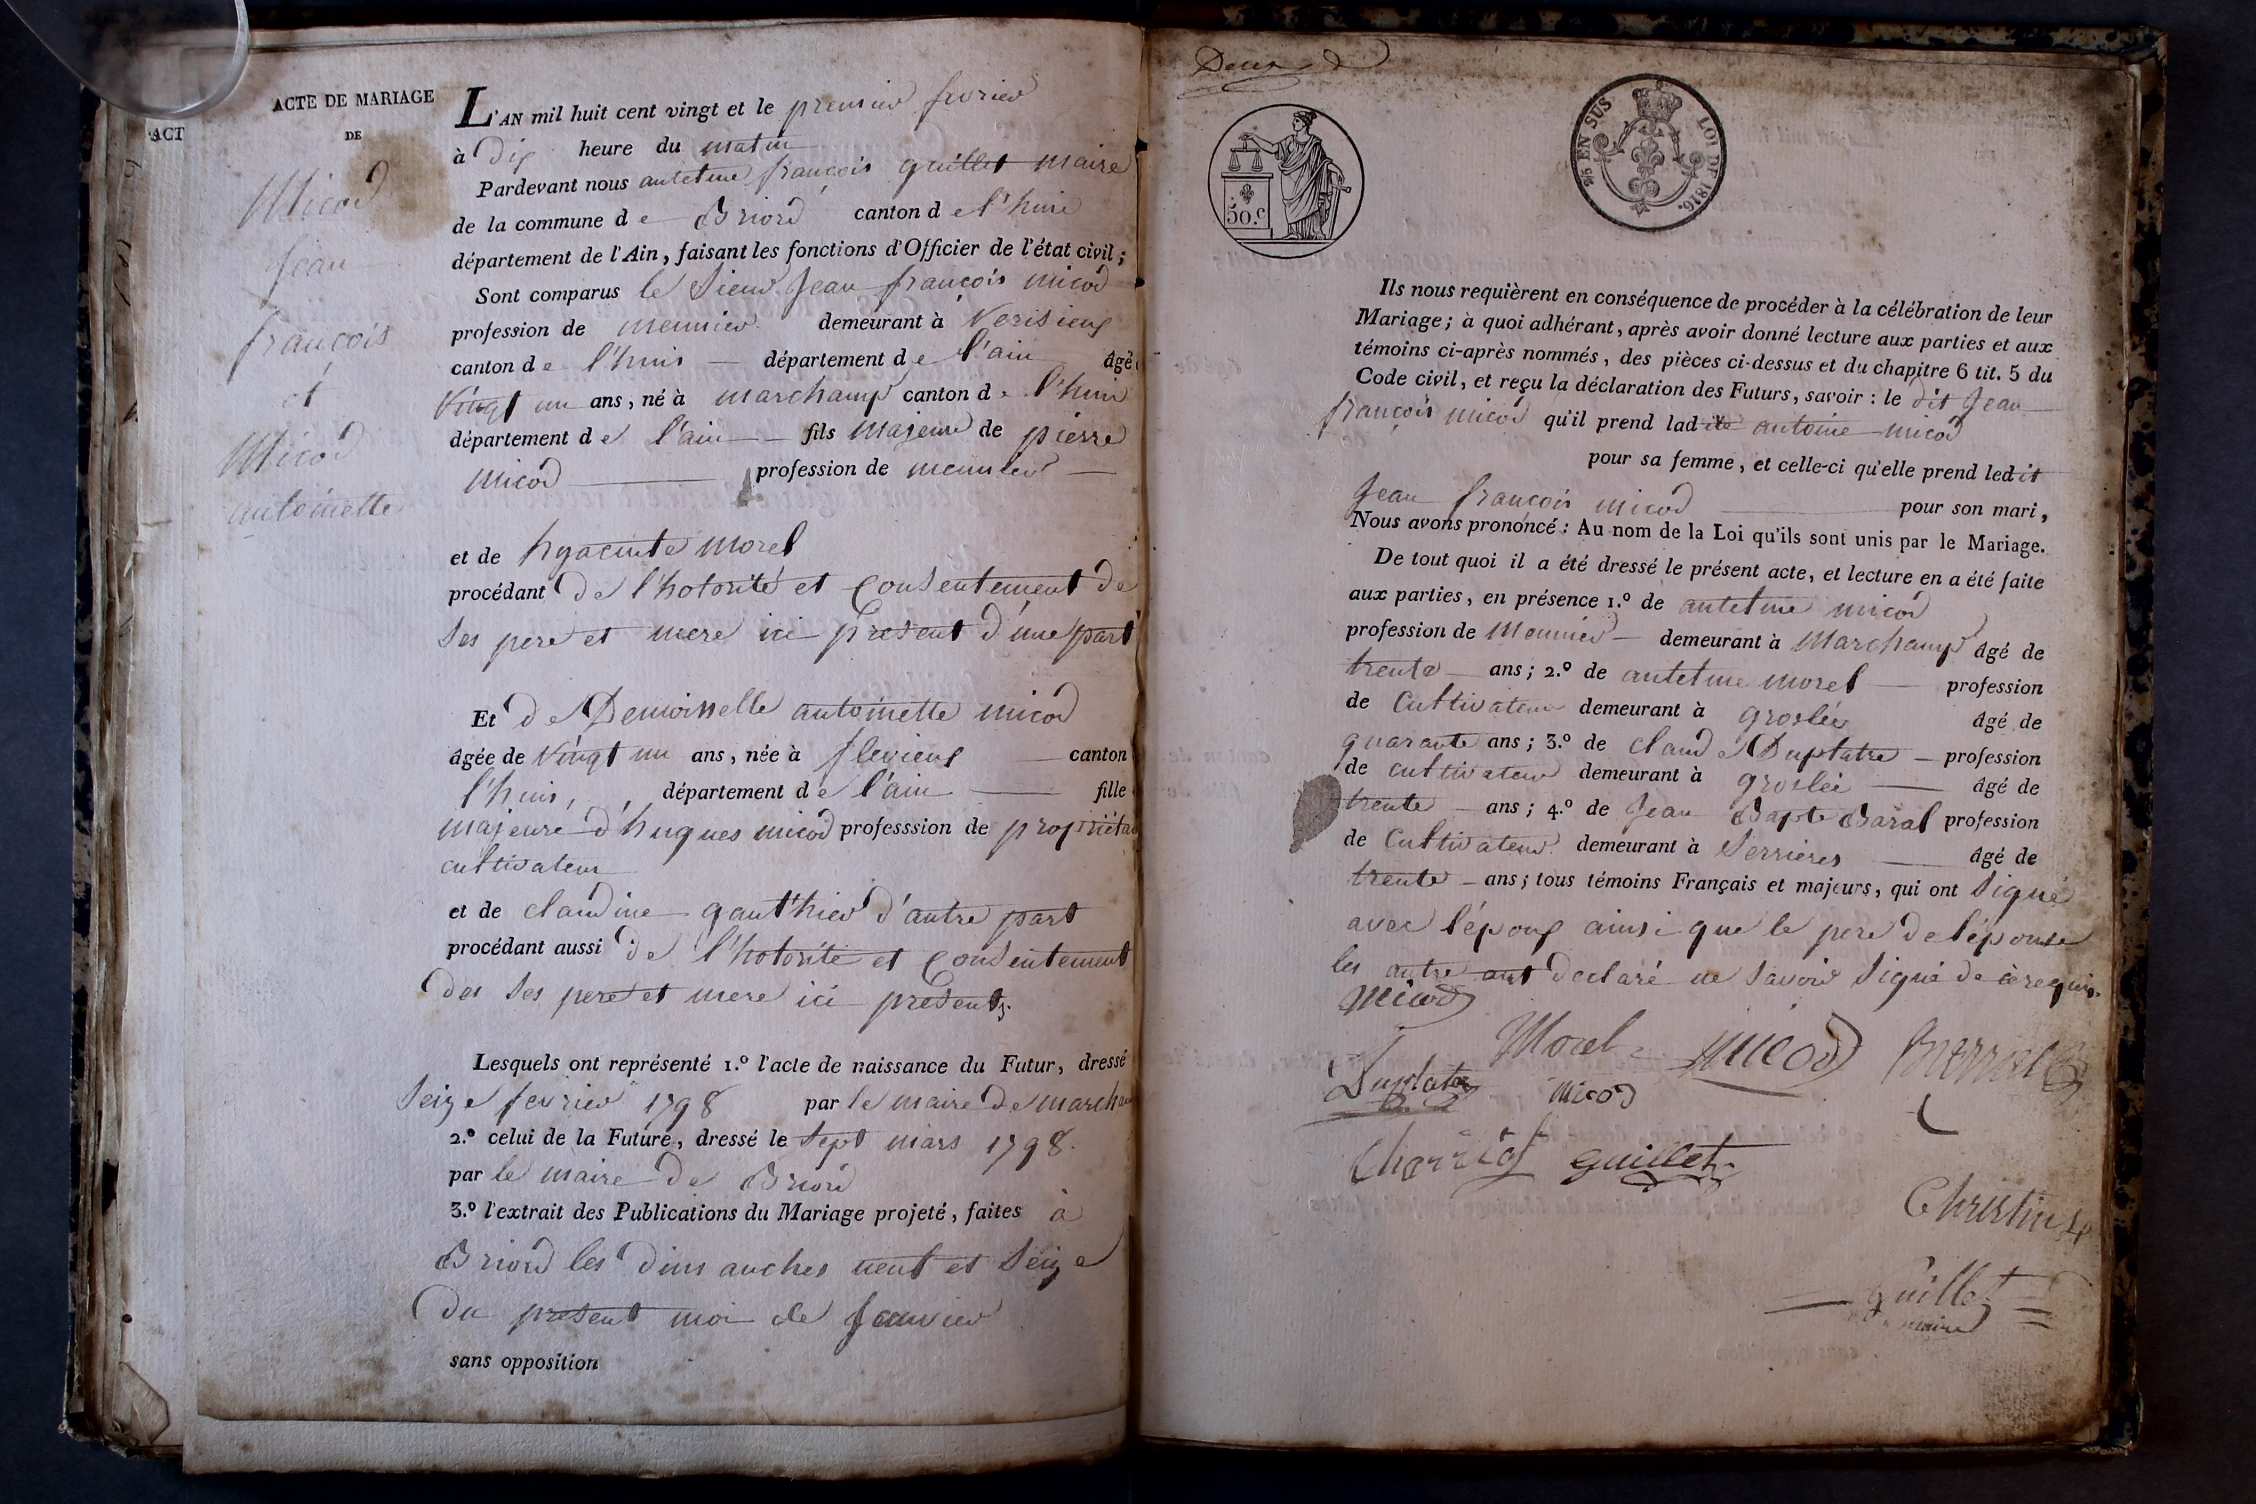 ACT
ACTE DE MARIAGE
DE
Micod
Jean
françois
et
Micod
antoinette
L'AN mil huit cent vingt et le premier fevrier
à dix heure du matin
Pardevant nous antelme françois guillet maire
de la commune de Briord canton de l'huis
département de l'Ain, faisant les fonctions d'Officier de l'état civil;
Sont comparus le Sieur Jean françois micod
profession de meunier demeurant à Verisieux
canton de l'huis département de l'ain âgé
vingt un ans, né à marchamp canton de l'huis
département de l'ain fils majeure de pierre
micod profession de meunier
et de hyacinte morel
procédant de l'hotorité et Consentement de
Ses pere et mere ici present d'une part
Et de Demoiselle antoinette micod
âgée de vingt un ans, née à flevieux canton
l'huis, département de l'ain fille
majeure d'hugues micod professsion de proprietai
cultivateur
et de claudine gauthier d'autre part
procédant aussi de l'hotorité et Consentement
des Ses pere et mere ici presents.
Lesquels ont représenté 1.º l'acte de naissance du Futur, dressé
Seize fevrier 1798 par le maire de marcham
2.º celui de la Future, dressé le Sept mars 1798.
par le maire de Briord
3.º l'extrait des Publications du Mariage projeté, faites à
Briord les dimanches neuf et Seize
du present moi de Janvier
sans opposition
Deux
50.c
25 EN SUS LOI DE 1816.
Ils nous requièrent en conséquence de procéder à la célébration de leur
Mariage; à quoi adhérant, après avoir donné lecture aux parties et aux
témoins ci-après nommés, des pièces ci-dessus et du chapitre 6 tit. 5 du
Code civil, et reçu la déclaration des Futurs, savoir: le dit Jean
françois micod qu'il prend ladite antoinie micod
pour sa femme, et celle-ci qu'elle prend ledit
Jean françois micod pour son mari,
Nous avons prononcé: Au nom de la Loi qu'ils sont unis par le Mariage.
De tout quoi il a été dressé le présent acte, et lecture en a été faite
aux parties, en présence 1.º de antelme micod
profession de Meunier demeurant à Marchamp âgé de
trente ans; 2.º de antelme morel profession
de Cultivateur demeurant à groslée âgé de
quarante ans; 3.º de claude Duplatre profession
de cultivateur demeurant à groslée âgé de
trente ans; 4.º de Jean Bapte Baral profession
de Cultivateur demeurant à Serrieres âgé de
trente ans; tous témoins Français et majeurs, qui ont Signé
avec l'époux ainsi que le pere de l'épouse
les autre ont declaré ne Savoir Signé de ce requis.
micod
Morel micod
Duplatre micod
Charriot guillet
Christin
guillet
maire